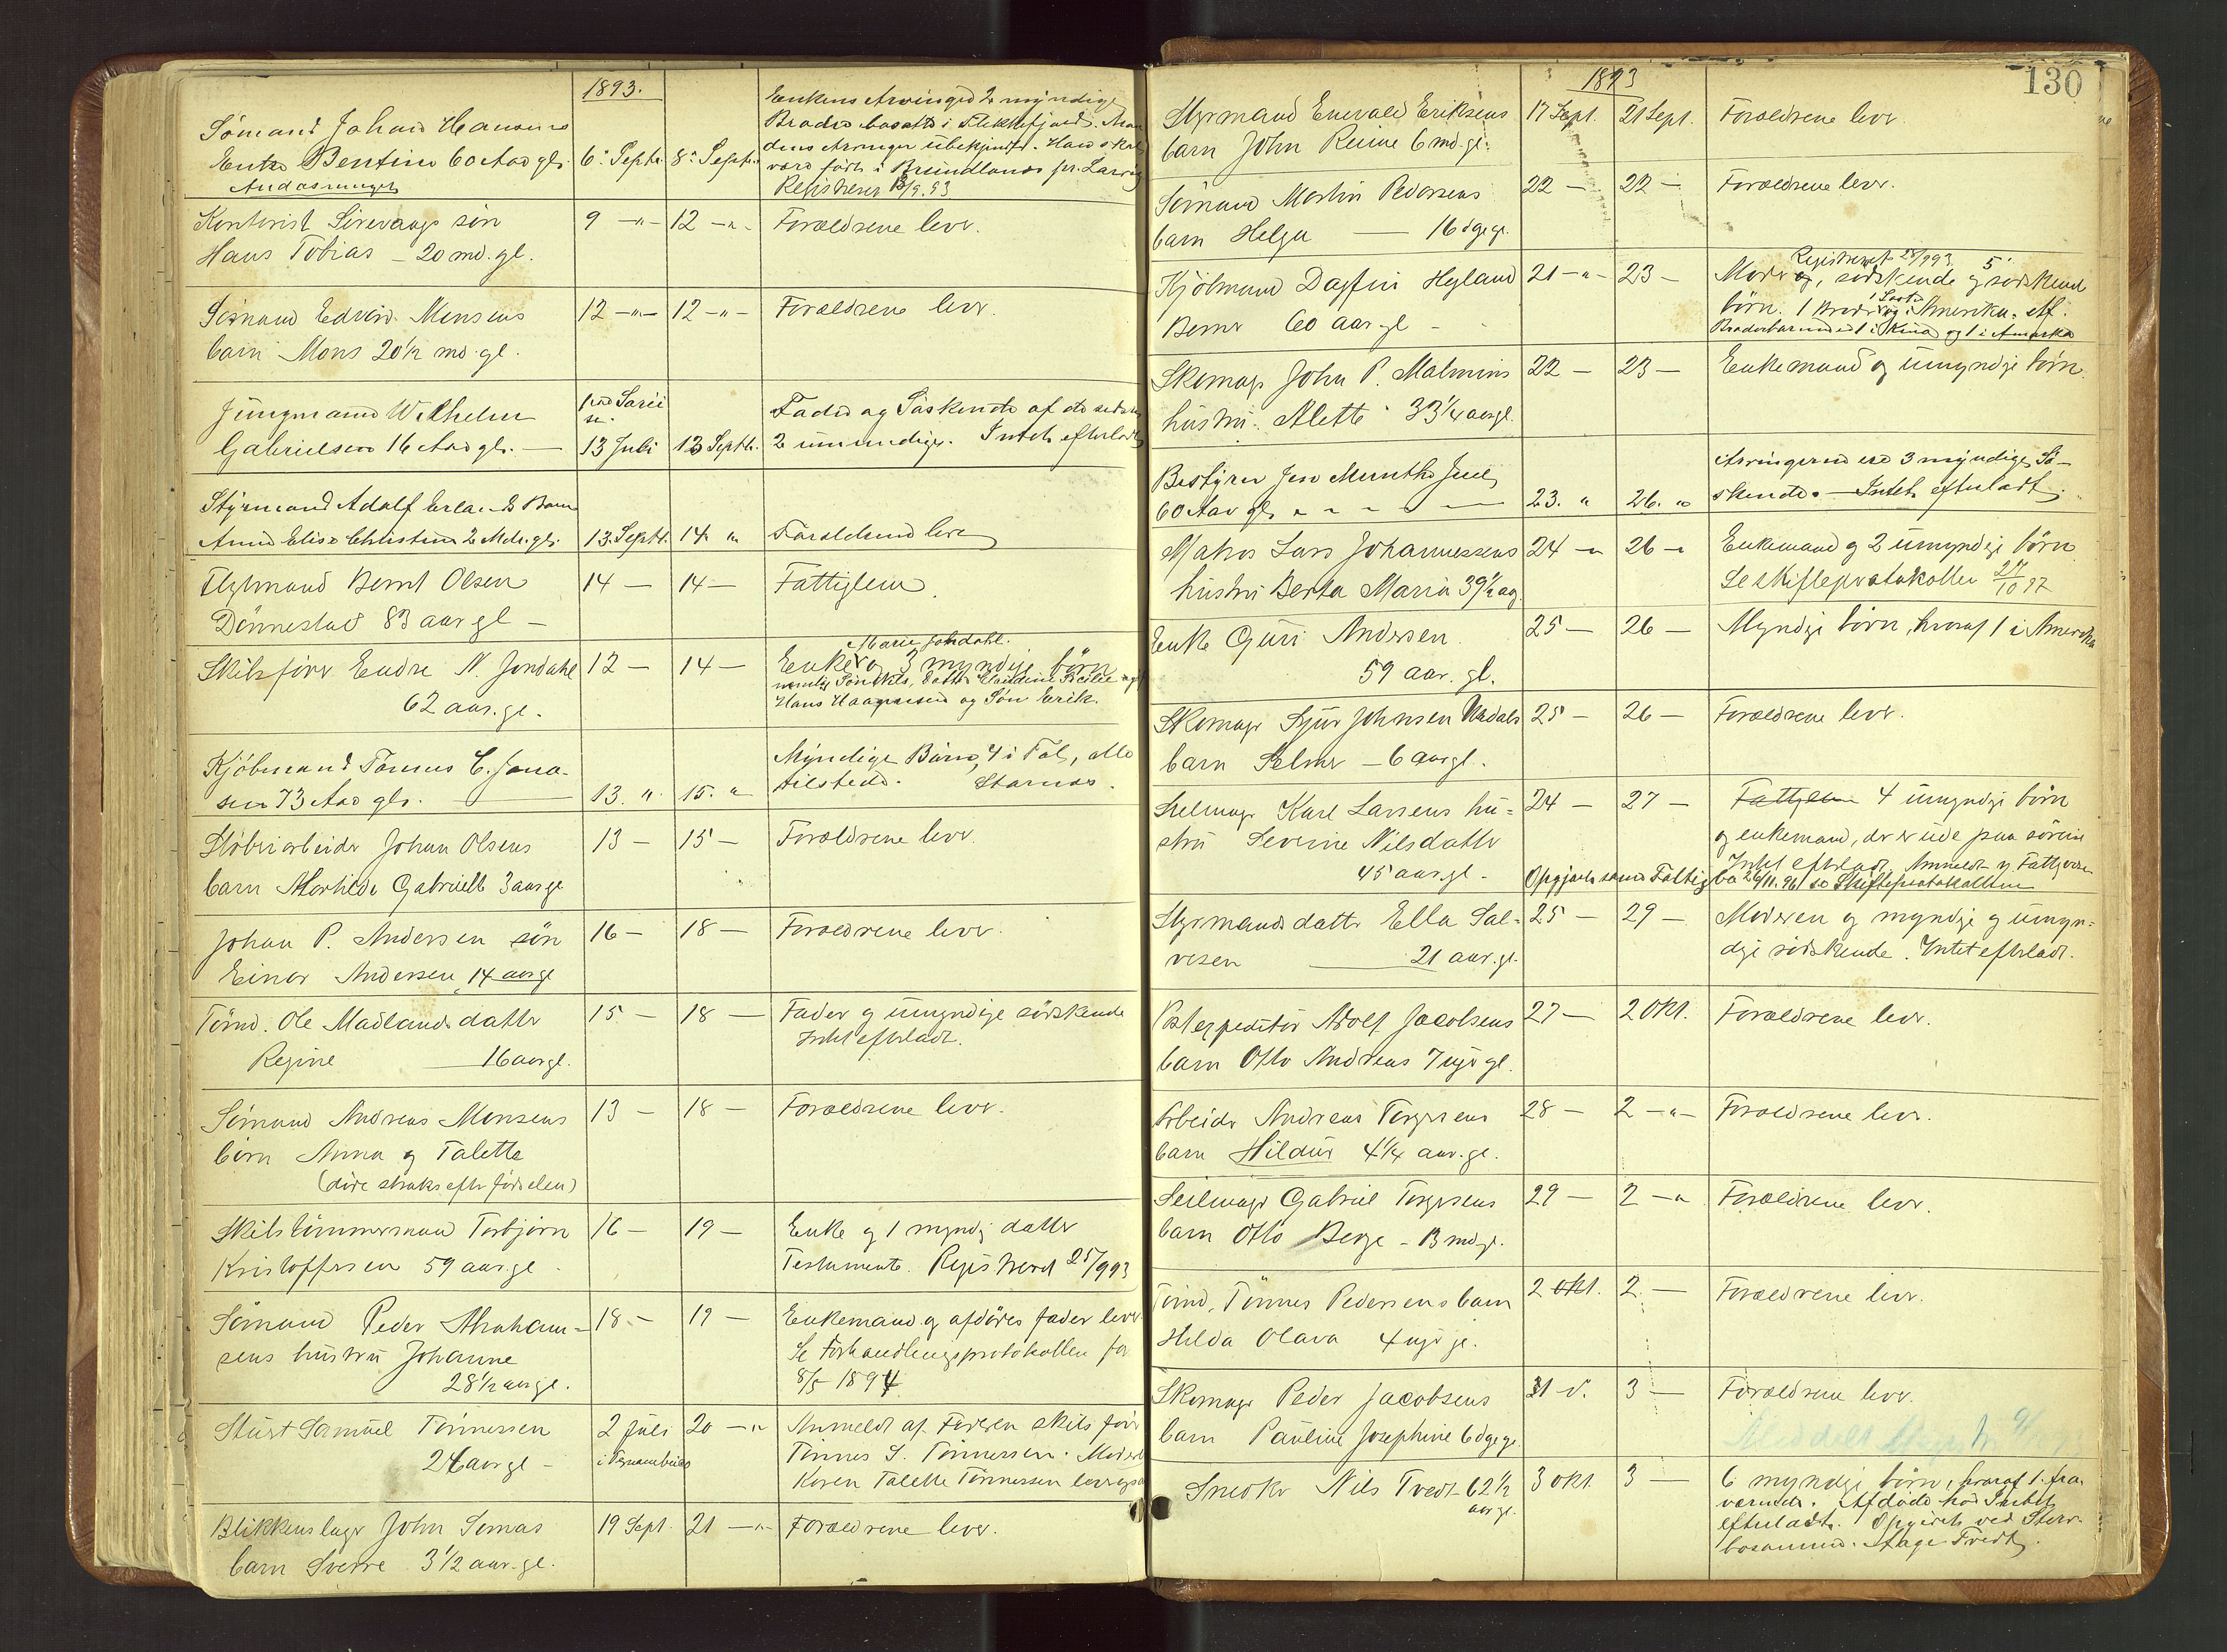 1893.
Sømand Johan Hansens
Enke Bentine 60 Aar gl. 6. Septr. 8. Septr.
Enkens Arvinger 2 myndige
Brødre bosatte i Flekkefjord.
dens Arvinger ubekjendt. Han skal
være født i Brundlanes pr. Larvig
Registreret 13/9.93
Kontorist Sirevaags søn 9 -"- 12 -"- Forældrene lever.
Hans Tobias - 20 md. gl.
Sømand Edvard Monsens 12 -"- 12 -"- Forældrene lever.
barn Mons 20½ md. gl.
Jungmand Wilhelm
Gabrielsen 16 Aar gl. - 13 Juli 13 Septbr.
Fader og Søskende af de sidste
2 umyndige. Intet efterladt
Styrmand Adolf Erlands Barn
Anne Elise Christine 2 Mdr. gl. 13. Septr. 14. " Forældrene lever
Flytmand Bernt Olsen 14 - 14 - Fattiglem.
Dønnestad 83 aar gl -
Skibsfører Endre N. Jondahl 12 - 14 -
62 aar. gl.
Marie Jondahl.
Enke og 3 myndige børn
Hans Haagensen og Søn Erik.
Kjøbmand Tønnes C. Jona-
sen 73 Aar gl. 13. " 15. "
Myndige Børn, 4 i Tal, alle
tilstede.
Støberiarbeider Johan Olsens 13 - 15 - Forældrene lever.
barn Mathilde Gabrielle 3 aar gl
Johan P. Andersen søn 16 - 18 - Forældrene lever.
Einar Andersen, 14 aar gl
Tømd. Ole Madlands datter 15 - 18 - Fader og umyndige søskende
Regine - 16 aar gl. Intet efterladt.
Sømand Andreas Monsens 13 - 18 - Forældrene lever.
børn Anna og Talette
(døde straks efter fødselen)
Skibstømmermand Torbjørn 16 - 19 - Enke og 1 myndig datter
Kristoffersen 59 aar. gl. Testamente. Registreret 25/9 93
Sømand Peder Abraham- 18 - 19 - Enkemand og afdødes fader lever
sens hustru Johanne Se Forhandlingsprotokollen for
28½ aar gl. 8/5 1894
Stuert Samuel Tønnessen 2 Juli 20 -"- Anmeldt af Faderen skibsfører
24 aar gl - i Pernambuco Tønnes S. Tønnessen. Moder
Karen Talette Tønnessen lever også
Blikkenslager John Sømas 19 Sept. 21 -"- Forældrene lever.
barn Sverre 3½ aar. gl.
130
1893
Styrmand Enevald Eriksens 17 Sept. 21 Sept. Forældrene lever.
barn John Reime 6 md. gl.
Sømand Martin Pedersens 22 - 22 - Forældrene lever.
barn Helga - 16 dge gl.
Kjøbmand Dagfin Hegland 21 -"- 23 -
Berner 60 aar gl -
Registreret 28/9 93
Moder, søskende og søskende
børn. 1 Broder i Amerika. Af
Broderbørnene 1 i Kina og 1 i Amerika
Skomager John P. Malmins 22 - 23 - Enkemand og umyndige børn.
hustru Alette 33¼ aar gl.
Bestyrer Jens Munthe Juel
60 Aar gl. 23. " 26. "
Arvingerne ere 3 myndige Sø-
skende. - Intet efterladt.
Matros Lars Johannessens 24 -"- 26 - Enkemand og 2 umyndige børn
hustru Berta Maria 39½ aar. Se skifteprotokollen 27/10 97
Enke Guri Andersen. 25 - 26 - Myndige børn, hvoraf 1 i Amerika
59 aar. gl.
Skomager Sjur Johnsen Aadals 25 - 26 - Forældrene lever.
barn Selmer - 6 aar gl.
Seilmager Karl Larsens hu- 24 - 27 - Fattiglem 4 umyndige børn
stru Severine Nilsdatter og enkemand, der er ude paa søreise
45 aar. gl - Intet efterladt. Anmeldt af Fattigvæs.
Opgjort som Fattigbo 26/11.96 se Skifteprotokollen
Styrmands datter Ella Sal- 25 - 29 - Moderen og myndige og umyn-
vesen - 21 aar. gl. dige søskende. Intet efterladt.
Postexpeditør Adolf Jacobsens 27 - 2 Okt. Forældrene lever.
barn Otto Andreas 7 uger gl.
Arbeider Andreas Torgersens 28 - 2 -"- Forældrene lever.
barn Hildur 4¼ aar. gl.
Seilmager Gabriel Torgersens 29 - 2 -" Forældrene lever.
barn Otto Berge - 13 md. gl.
Tømd. Tønnes Pedersens barn 2 Okt. 2 - Forældrene lever.
Hilda Olava 4 uger gl.
Skomager Peder Jacobsens 31 3 - Forældrene lever.
barn Pauline Josephine 6 dge gl.
Snedker Nils Tvedt 62½ 3 Okt. 3 -
aar gl.
6 myndige børn, hvoraf 1 fra-
værende. Afdøde har Intet
efterladt. Opgivet ved Sviger-
Aage Tvedt.